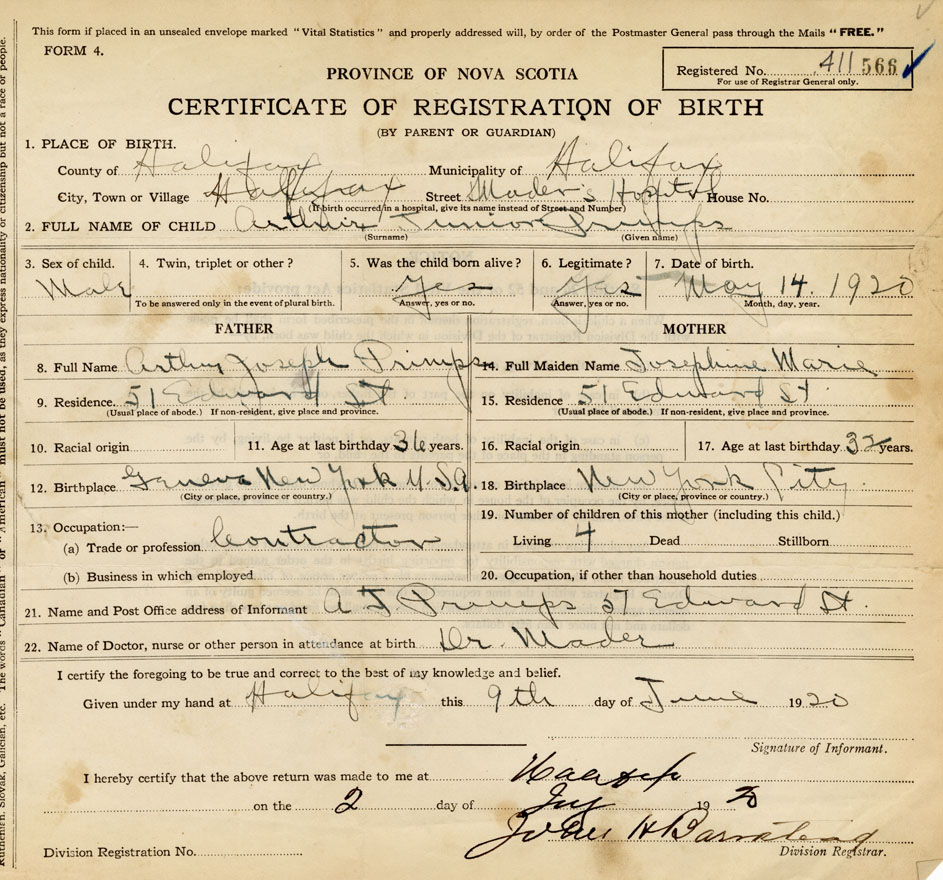 This form if placed in an unsealed envelope marked "Vital Statistics" and properly addressed will, by order of the Postmaster General pass through the Mails "FREE."
FORM 4.
Registered No. 411 566
For use of Registrar General only.
PROVINCE OF NOVA SCOTIA
CERTIFICATE OF REGISTRATION OF BIRTH
(BY PARENT OR GUARDIAN)
1. PLACE OF BIRTH.
County of Halifax Municipality of Halifax
City, Town or Village Halifax Street Mader's Hospital House No.
(If birth occurred in a hospital, give its name instead of Street and Number)
2. FULL NAME OF CHILD Arthur Junior Primps
(Surname) (Given name)
3. Sex of child. 4. Twin, triplet or other? 5. Was the child born alive? 6. Legitimate? 7. Date of birth.
Male Yes Yes May 14. 1920
To be answered only in the event of plural birth. Answer, yes or no. Answer, yes or no. Month, day, year.
FATHER MOTHER
8. Full Name Arthur Joseph Primps 14. Full Maiden Name Josephine Marie
9. Residence. 51 Edward St 15. Residence 51 Edward St
(Usual place of abode.) If non-resident, give place and province. (Usual place of abode.) If non-resident, give place and province.
10. Racial origin 11. Age at last birthday 36 years. 16. Racial origin 17. Age at last birthday 32 years.
12. Birthplace Geneva New York U.S.A. 18. Birthplace New York City
(City or place, province or country.) (City or place, province or country.)
19. Number of children of this mother (including this child.)
13. Occupation:—
(a) Trade or profession Contractor Living 4 Dead Stillborn
(b) Business in which employed 20. Occupation, if other than household duties
21. Name and Post Office address of Informant A J. Primps 57 Edward St.
22. Name of Doctor, nurse or other person in attendance at birth Dr. Mader
I certify the foregoing to be true and correct to the best of my knowledge and belief.
Given under my hand at Halifax this 9th day of June 1920
Signature of Informant.
I hereby certify that the above return was made to me at
on the 2 day of July 1920
John H Barnstead
Division Registration No. Division Registrar.
Ruthenian, Slovak, Galician, etc. The words "Canadian" or "American" must not be used, as they express nationality or citizenship but not a race or people.